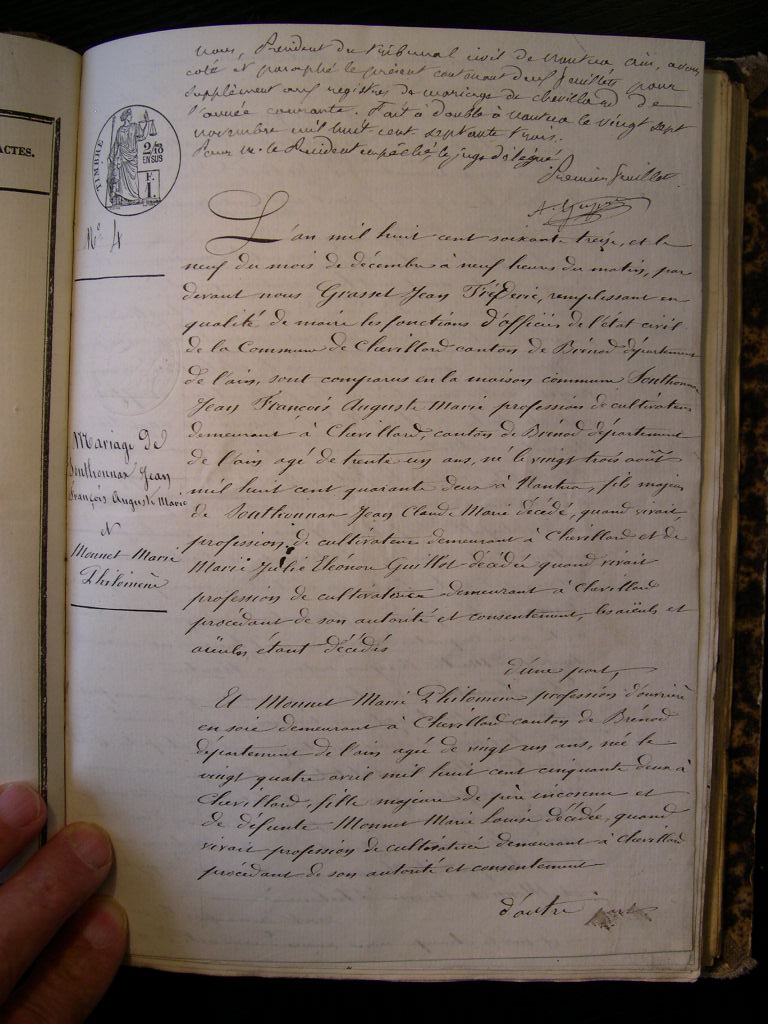 ACTES.
nous, Président du tribunal civil de nantua ain, avons
coté et paraphé le présent contenant deux feuillets pour
supplément aux registres de mariage de chevillard de
l'année courante. Fait à double à nantua le vingt sept
novembre mil huit cent septante trois.
Pour m. le Président empêché, le juge délégué
Premier feuillet.
TIMBRE
2/10
EN SUS
F.
1.
No 4
L'an mil huit cent soixante treize, et le
neuf du mois de décembre à neuf heures du matin, par
devant nous Grasset Jean Fréderic, remplissant en
qualité de maire les fonctions d'officier de l'état civil
de la Commune de Chevillard canton de Brénod département
de l'ain, sont comparus en la maison commune Sonthonnax
Jean François Auguste Marie profession de cultivateur
demeurant à Chevillard, canton de Brénod département
de l'ain agé de trente un ans, né le vingt trois août
mil huit cent quarante deux à Nantua, fils majeur
de Sonthonnax Jean Claude Marie décédé, quand vivait
profession de cultivateur demeurant à Chevillard et de
Marie Julie Eleónore Guillot décédée quand vivait
profession de cultivatrice demeurant à Chevillard
procédant de son autorité et consentement, les aïeuls et
aïeules étant décédés
d'une part,
Mariage de
Sonthonnax Jean
François Auguste Marie
et
Monnet Marie
Philomène
Et Monnet Marie Philomène profession d'ouvrière
en soie demeurant à Chevillard canton de Brénod
département de l'ain agée de vingt un ans, née le
vingt quatre avril mil huit cent cinquante deux à
Chevillard, fille majeure de père inconnu et
de défunte Monnet Marie Louise décédée, quand
vivait profession de cultivatrice demeurant à Chevillard
procédant de son autorité et consentement
d'autre part